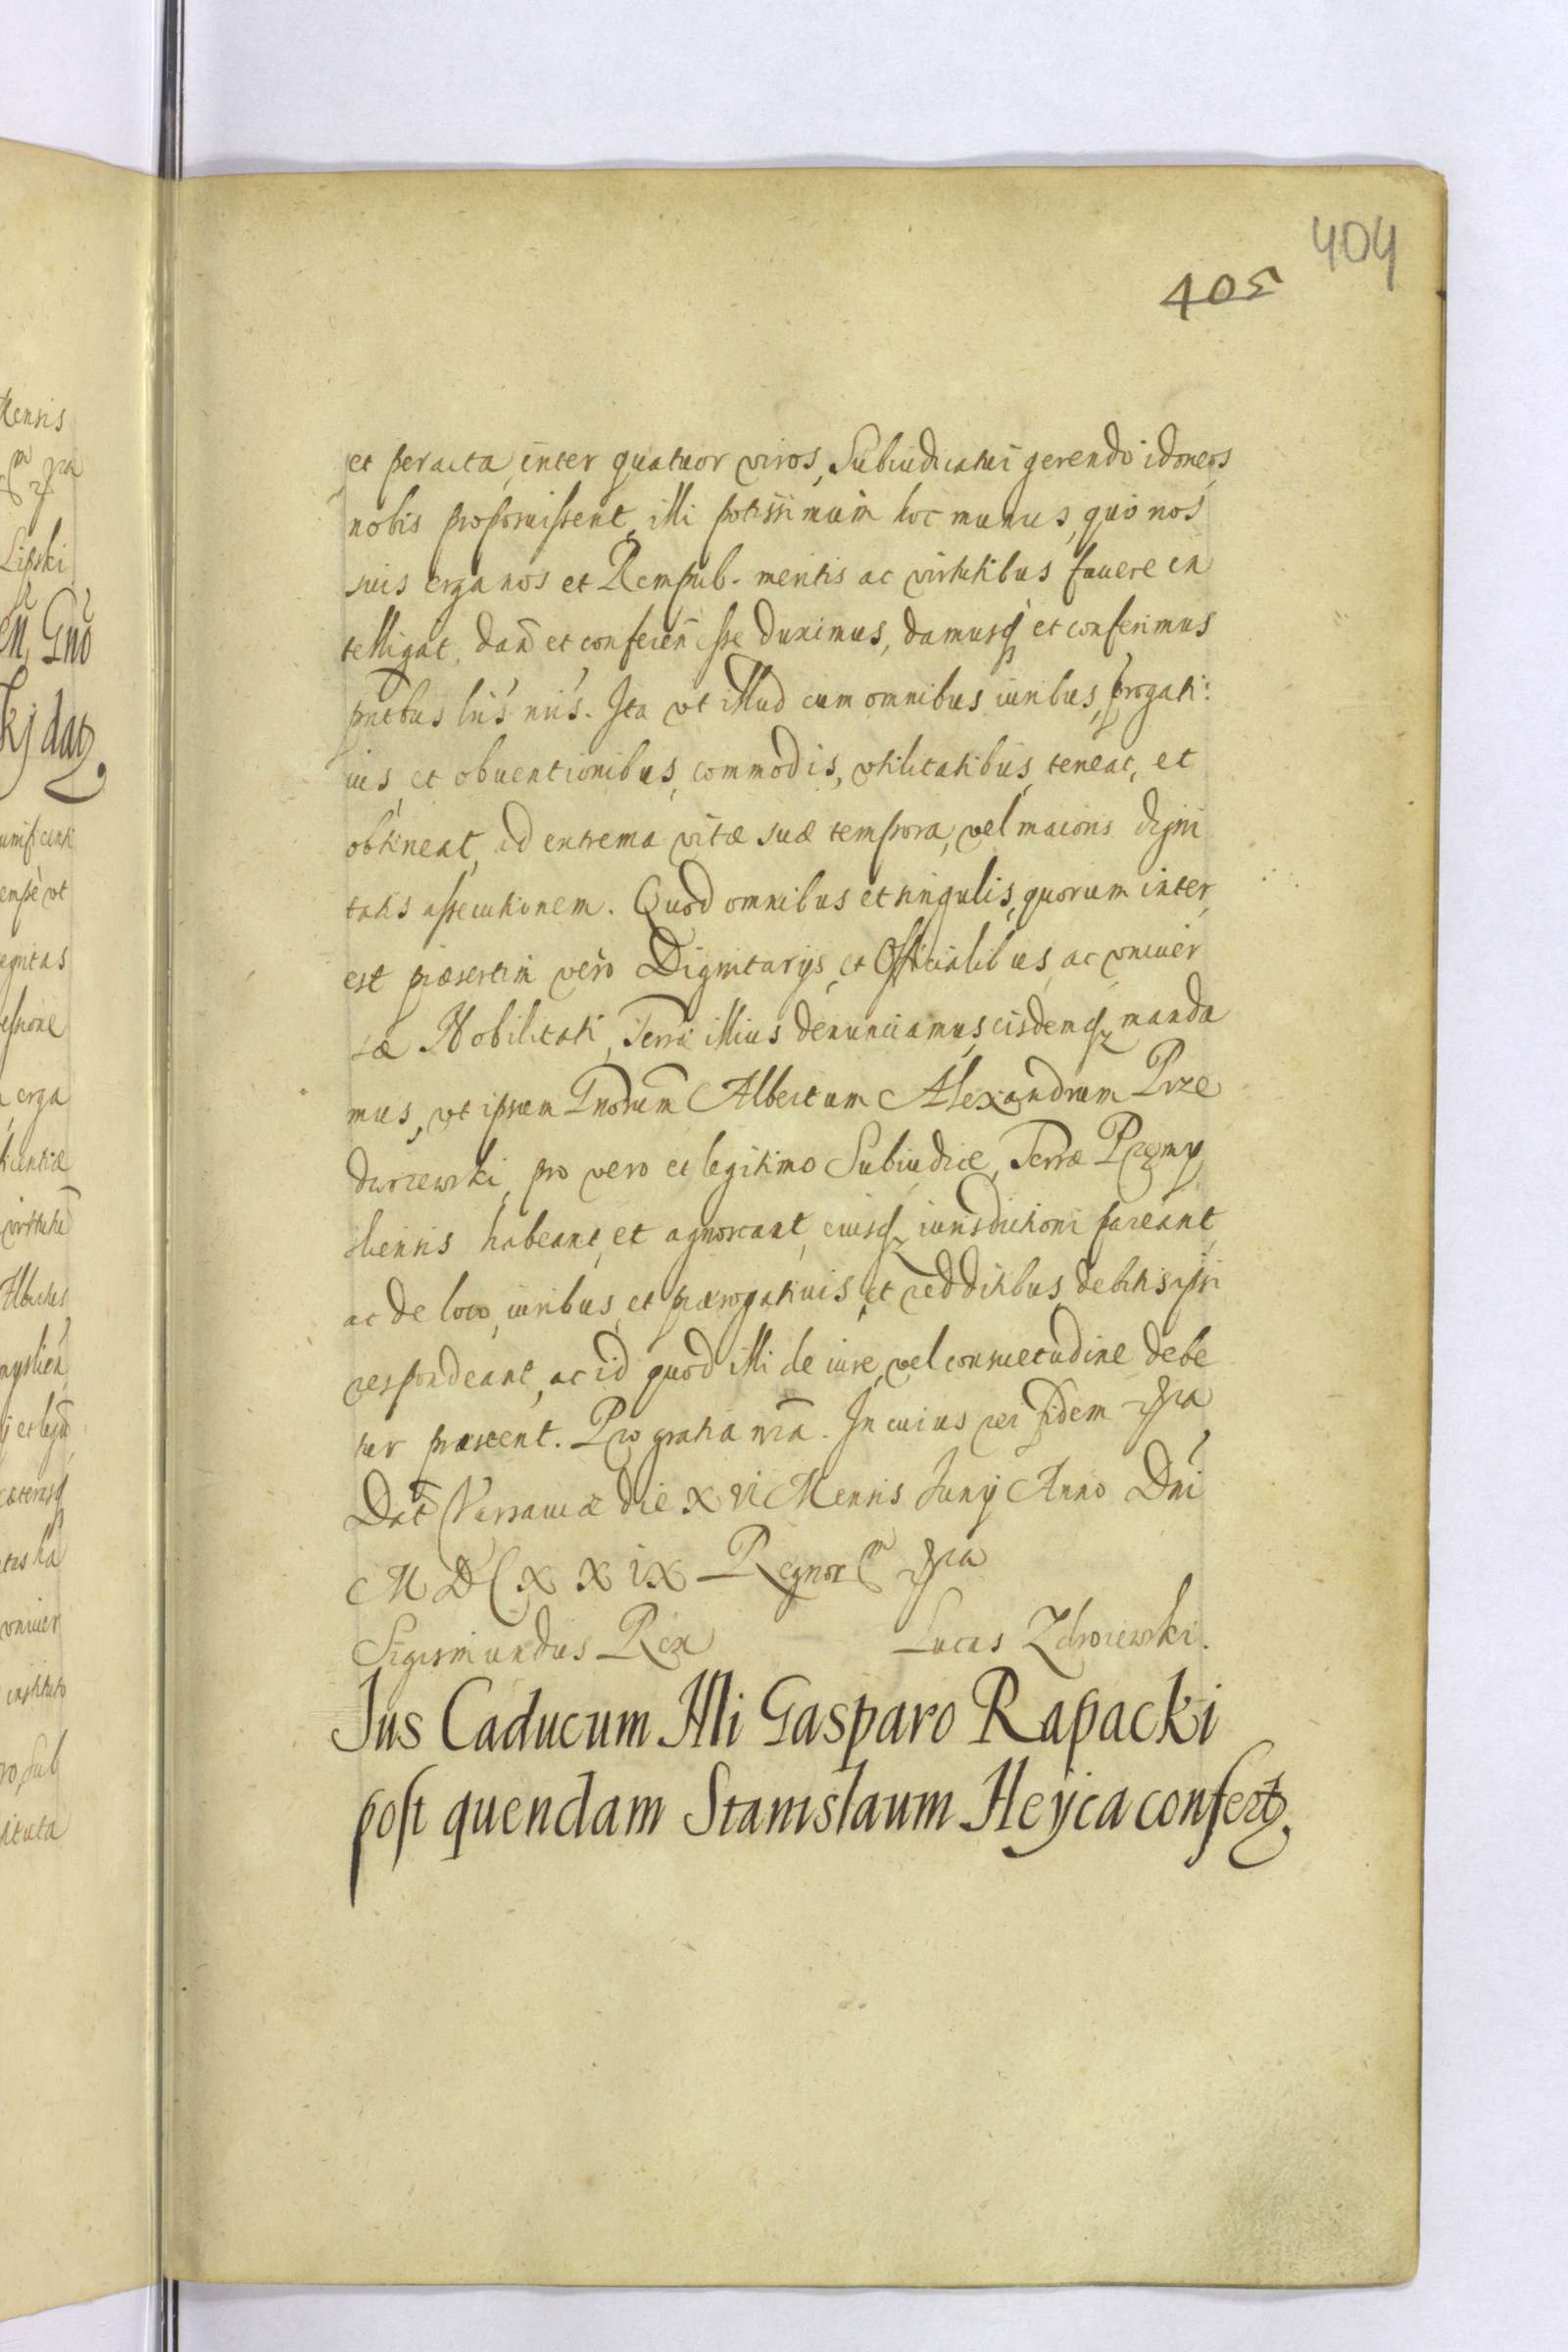 404
405
et peracta, inter quatuor viros, Subiudicatui gerendo idoneos
nobis proposuissent, illi potissimum hoc munus, quo nos
suis erga nos et Rempub. meritis ac virtutibus fauere in
telligat, dan̄ et conferen̄ esse duximus, damusq et conferimus
pn̄tbus lr̄is nr̄is. Ita vt illud cum omnibus iuribus, prrogati:
uis, et obuentionibus, commodis, vtilitatibus, teneat, et
obtineat, ad extrema vitæ suæ tempora, vel maioris digni
tatis assecutionem. Quod omnibus et singulis, quorum inter
est præsertim vero Dignitarijs, et Officialibus, ac vniuer
sæ Nobilitati, Terræ illius denunciamus, eisdemq manda
mus, vt ipsum Gn̄osum Albertum Alexandrum Prze
dworewski, pro vero et legitimo Subiudice, Terræ Præmy
sliensis habeant, et agnoscant, eiusq iurisdictioni pareant,
ac de loco, iuribus, et prærogatiuis, et redditibus, debitis ipsi
respondeant, ac id quod illi de iure, vel consuetudine debe
tur præstent. Pro gratia nr̄a. In cuius rei fidem
Dat̄ Varsauiæ die XVI Mensis Junij Anno Dn̄i
M D C X X I X Regnor
Sigismundus Rex Lucas Zdroiewski.
Jus Caducum Illi Gasparo Rapacki
post quendam Stanislaum Heyca confert.